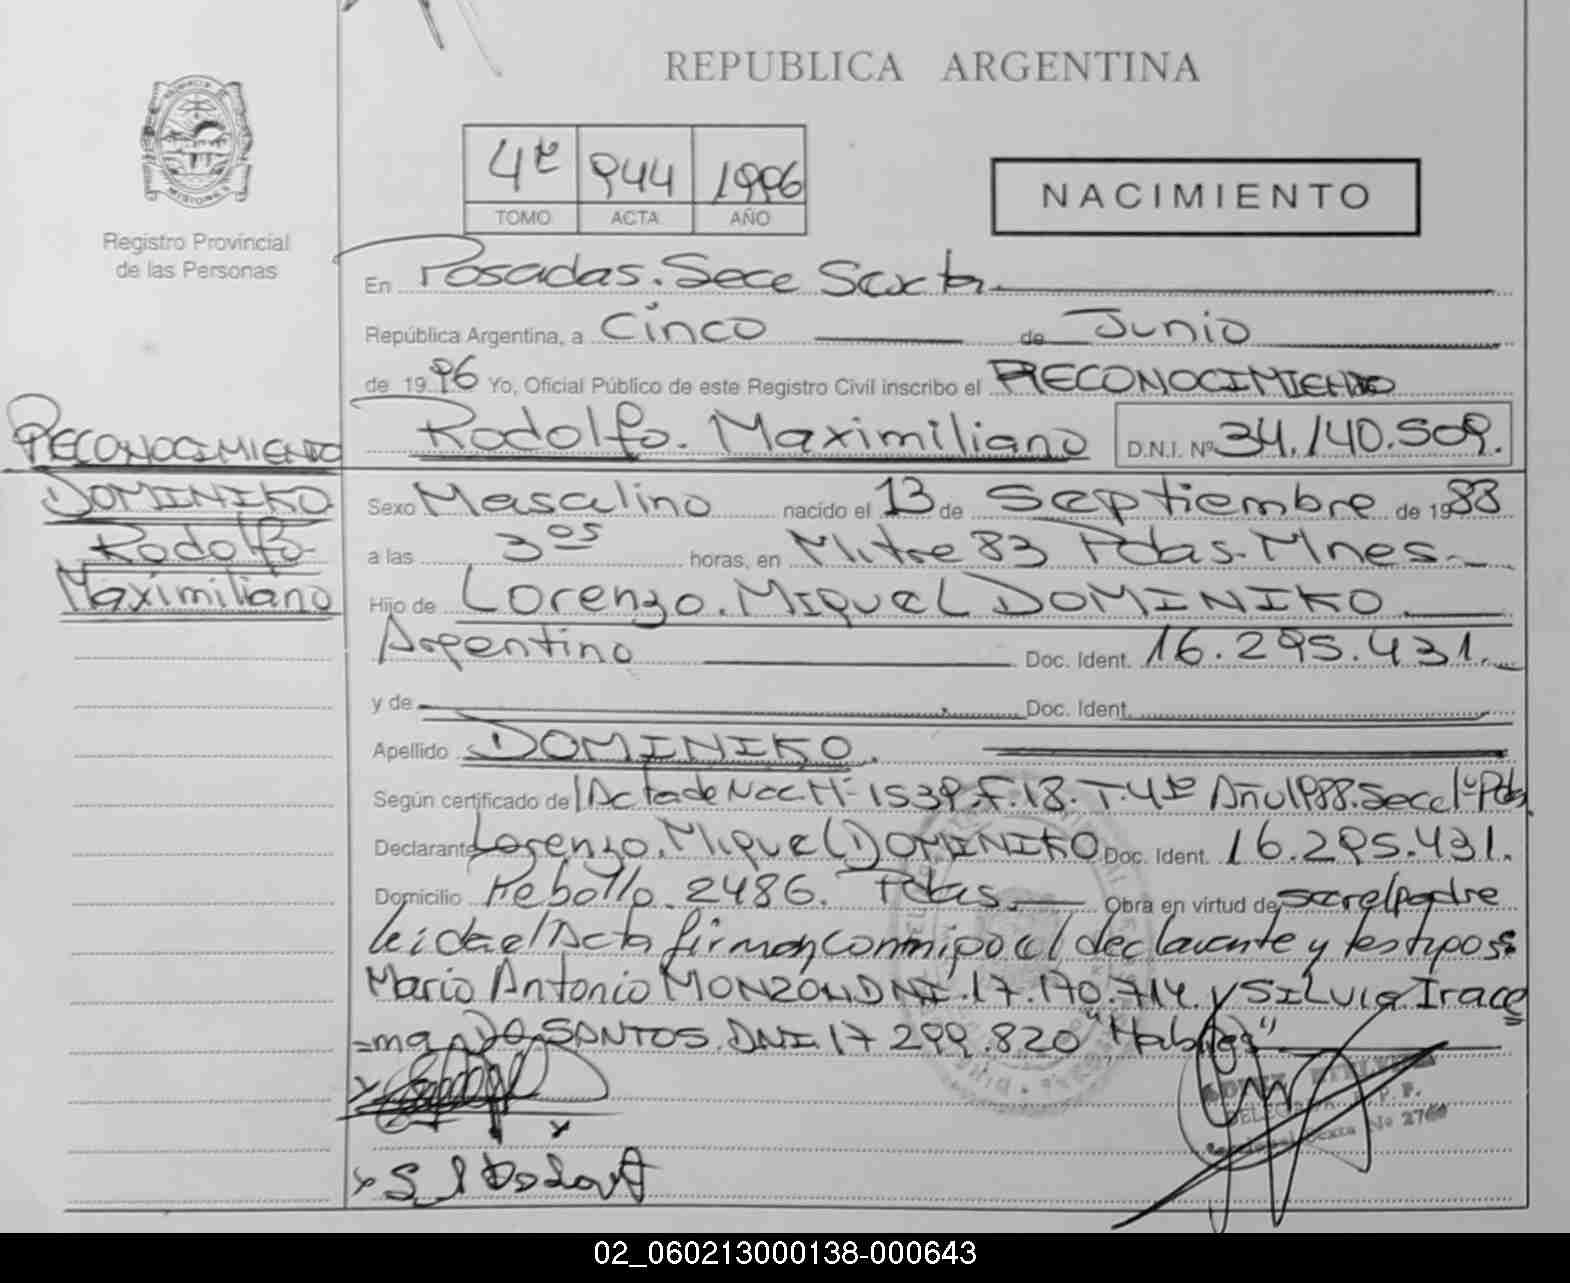 REPUBLICA ARGENTINA
PROVINCIA DE
MISIONES
Registro Provincial
de las Personas
4º 944 1996
TOMO ACTA AÑO
NACIMIENTO
En Posadas. Secc Sexta
República Argentina, a Cinco de Junio
de 1996 Yo, Oficial Público de este Registro Civil inscribo el RECONOCIMIENTO
Rodolfo. Maximiliano D.N.I. Nº 34.140.509.
RECONOCIMIENTO
DOMINIKO
Rodolfo
Maximiliano
Sexo Masculino nacido el 13 de Septiembre de 1988
a las 3 05 horas, en Mitre 83 Pdas. Mnes.
Hijo de Lorenzo. Miguel DOMINIKO
Argentino Doc. Ident. 16.295.431.
y de Doc. Ident.
Apellido DOMINIKO.
Según certificado de Acta de Nac Nº 1539. F. 18. T. 4º Año 1988. Secc 1º Pdas
Declarante Lorenzo. Miguel DOMINIKO Doc. Ident. 16.295.431.
Domicilio Rebollo. 2486. Pdas. Obra en virtud de ser el padre
leida el Acta firman conmigo el declarante y testigos:
Mario Antonio MONZON DNI. 17.170.714. y SILVIA Irace
=ma Do SANTOS. DNI. 17 299.820 "Habiles"
02_060213000138-000643